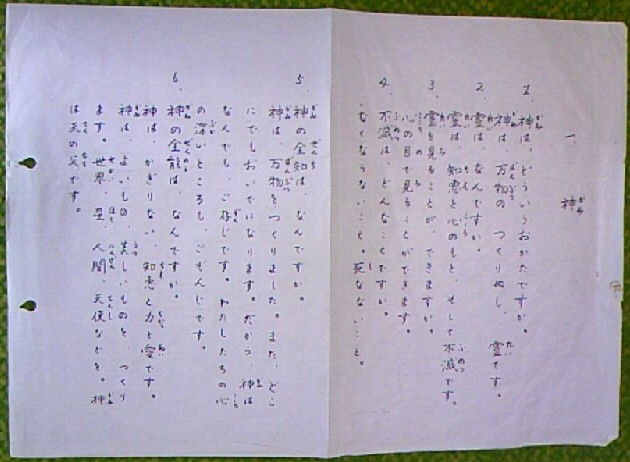 一、神
1. 神は、どういうおかたですか。
神は、万物の つくりぬし、 霊です。
2. 霊は、なんですか。
霊は、知恵と心のもと、そして不滅です。
3. 霊を見ることが、できますか。
心の目で見ることができます。
4. 不滅は、どんなことですか。
なくならないこと。死なないこと。
5. 神の全知は、なんですか。
神は、万物をつくりました。また、どこ
にでもおいでになります。だから、神は
なんでも、ご存じです。わたしたちの心
の深いところも、ごぞんじです。
6. 神の全能は、なんですか。
神は、かぎりない、知恵と力と愛です。
神は、よいもの、美しいものを、つくり
ます。世界、星、人間、天使などを。神
は天の父です。